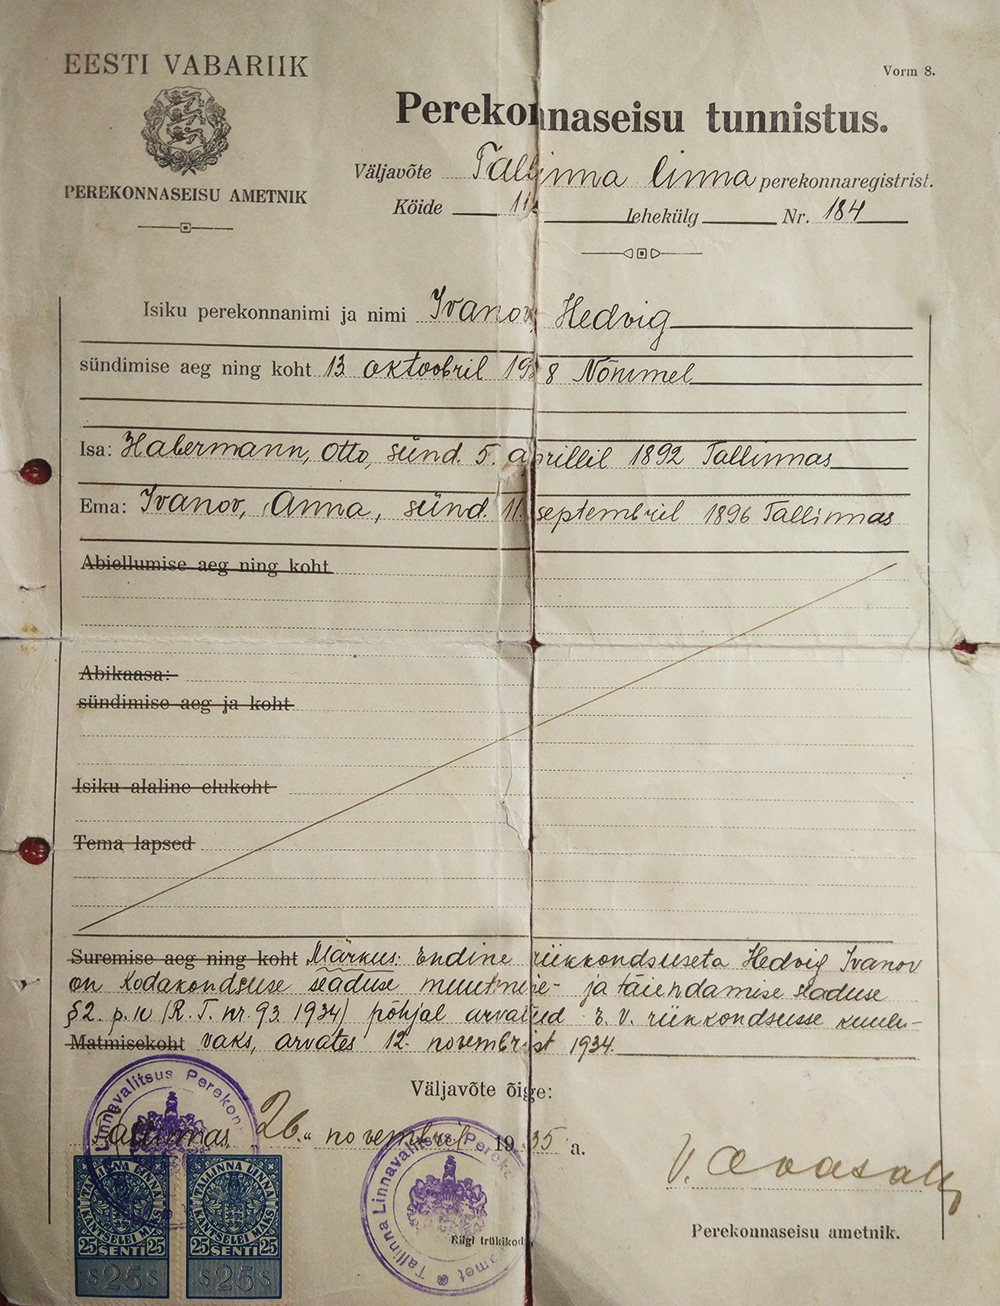 EESTI VABARIIK
PEREKONNASEISU AMETNIK
Vorm 8.
Perekonnaseisu tunnistus.
Väljavõte Tallinna linna perekonnaregistrist.
Köide 11 lehekülg Nr. 184
Isiku perekonnanimi ja nimi Ivanov, Hedvig
sündimise aeg ning koht 13 oktoobril 8 Nõmmel
Isa: Habermann, Otto, sünd. 5. aprillil 1892 Tallinnas
Ema: Ivanov, Anna, sünd. 11. septembril 1896 Tallinnas
Abiellumise aeg ning koht
Abikaasa:
sündimise aeg ja koht
Isiku alaline elukoht
Tema lapsed
Suremise aeg ning koht Märkus: Endine riikkondsuseta Hedvig Ivanov
on Kodakondsuse seaduse muutmise- ja täiendamise seaduse
§2. p. (R.T. nr. 93 1934) põhjal arvatud E.V. riikkondsusse kuulu-
Matmisekoht vaks, arvates 12. novembrist 1934.
Väljavõte õige:
Tallinnas, 26." novembril 1935 a.
Perekonnaseisu ametnik.
Riigi trükikoda
Linnavalitsus Perekon
Tallinna Linnavalitsus Pereko amet
TALLINNA LINNA
KANTSELEI MAKS
25 SENTI 25
S 25 S
TALLINNA LINNA
KANTSELEI MAKS
25 SENTI 25
S 25 S